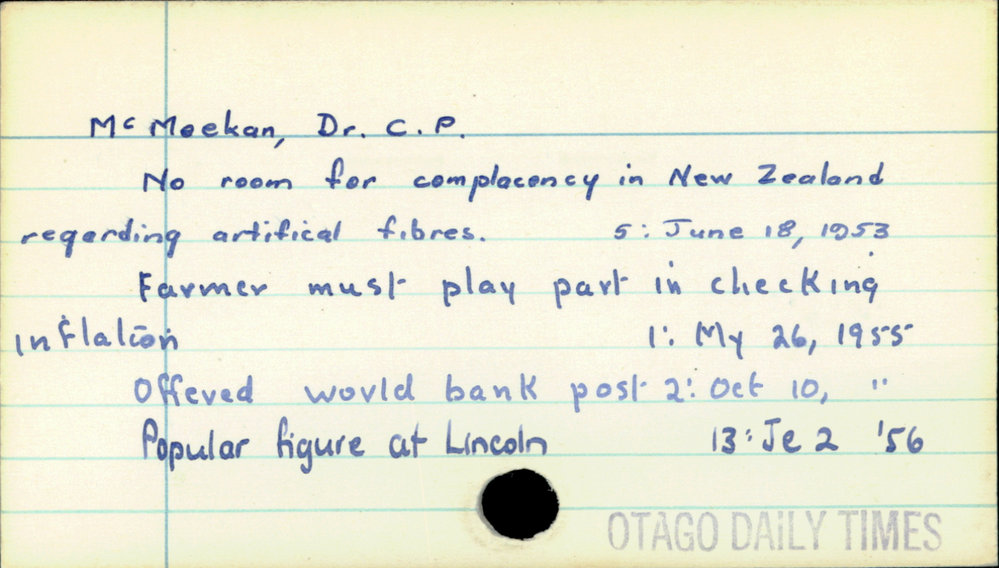 Mc Meekan, Dr. C. P.
No room for complacency in New Zealand
regarding artifical fibres. 5: June 18, 1953
Farmer must play part in checking
inflation 1: My 26, 1955
Offered world bank post 2: Oct 10, "
Popular figure at Lincoln 13: Je 2 '56
OTAGO DAILY TIMES